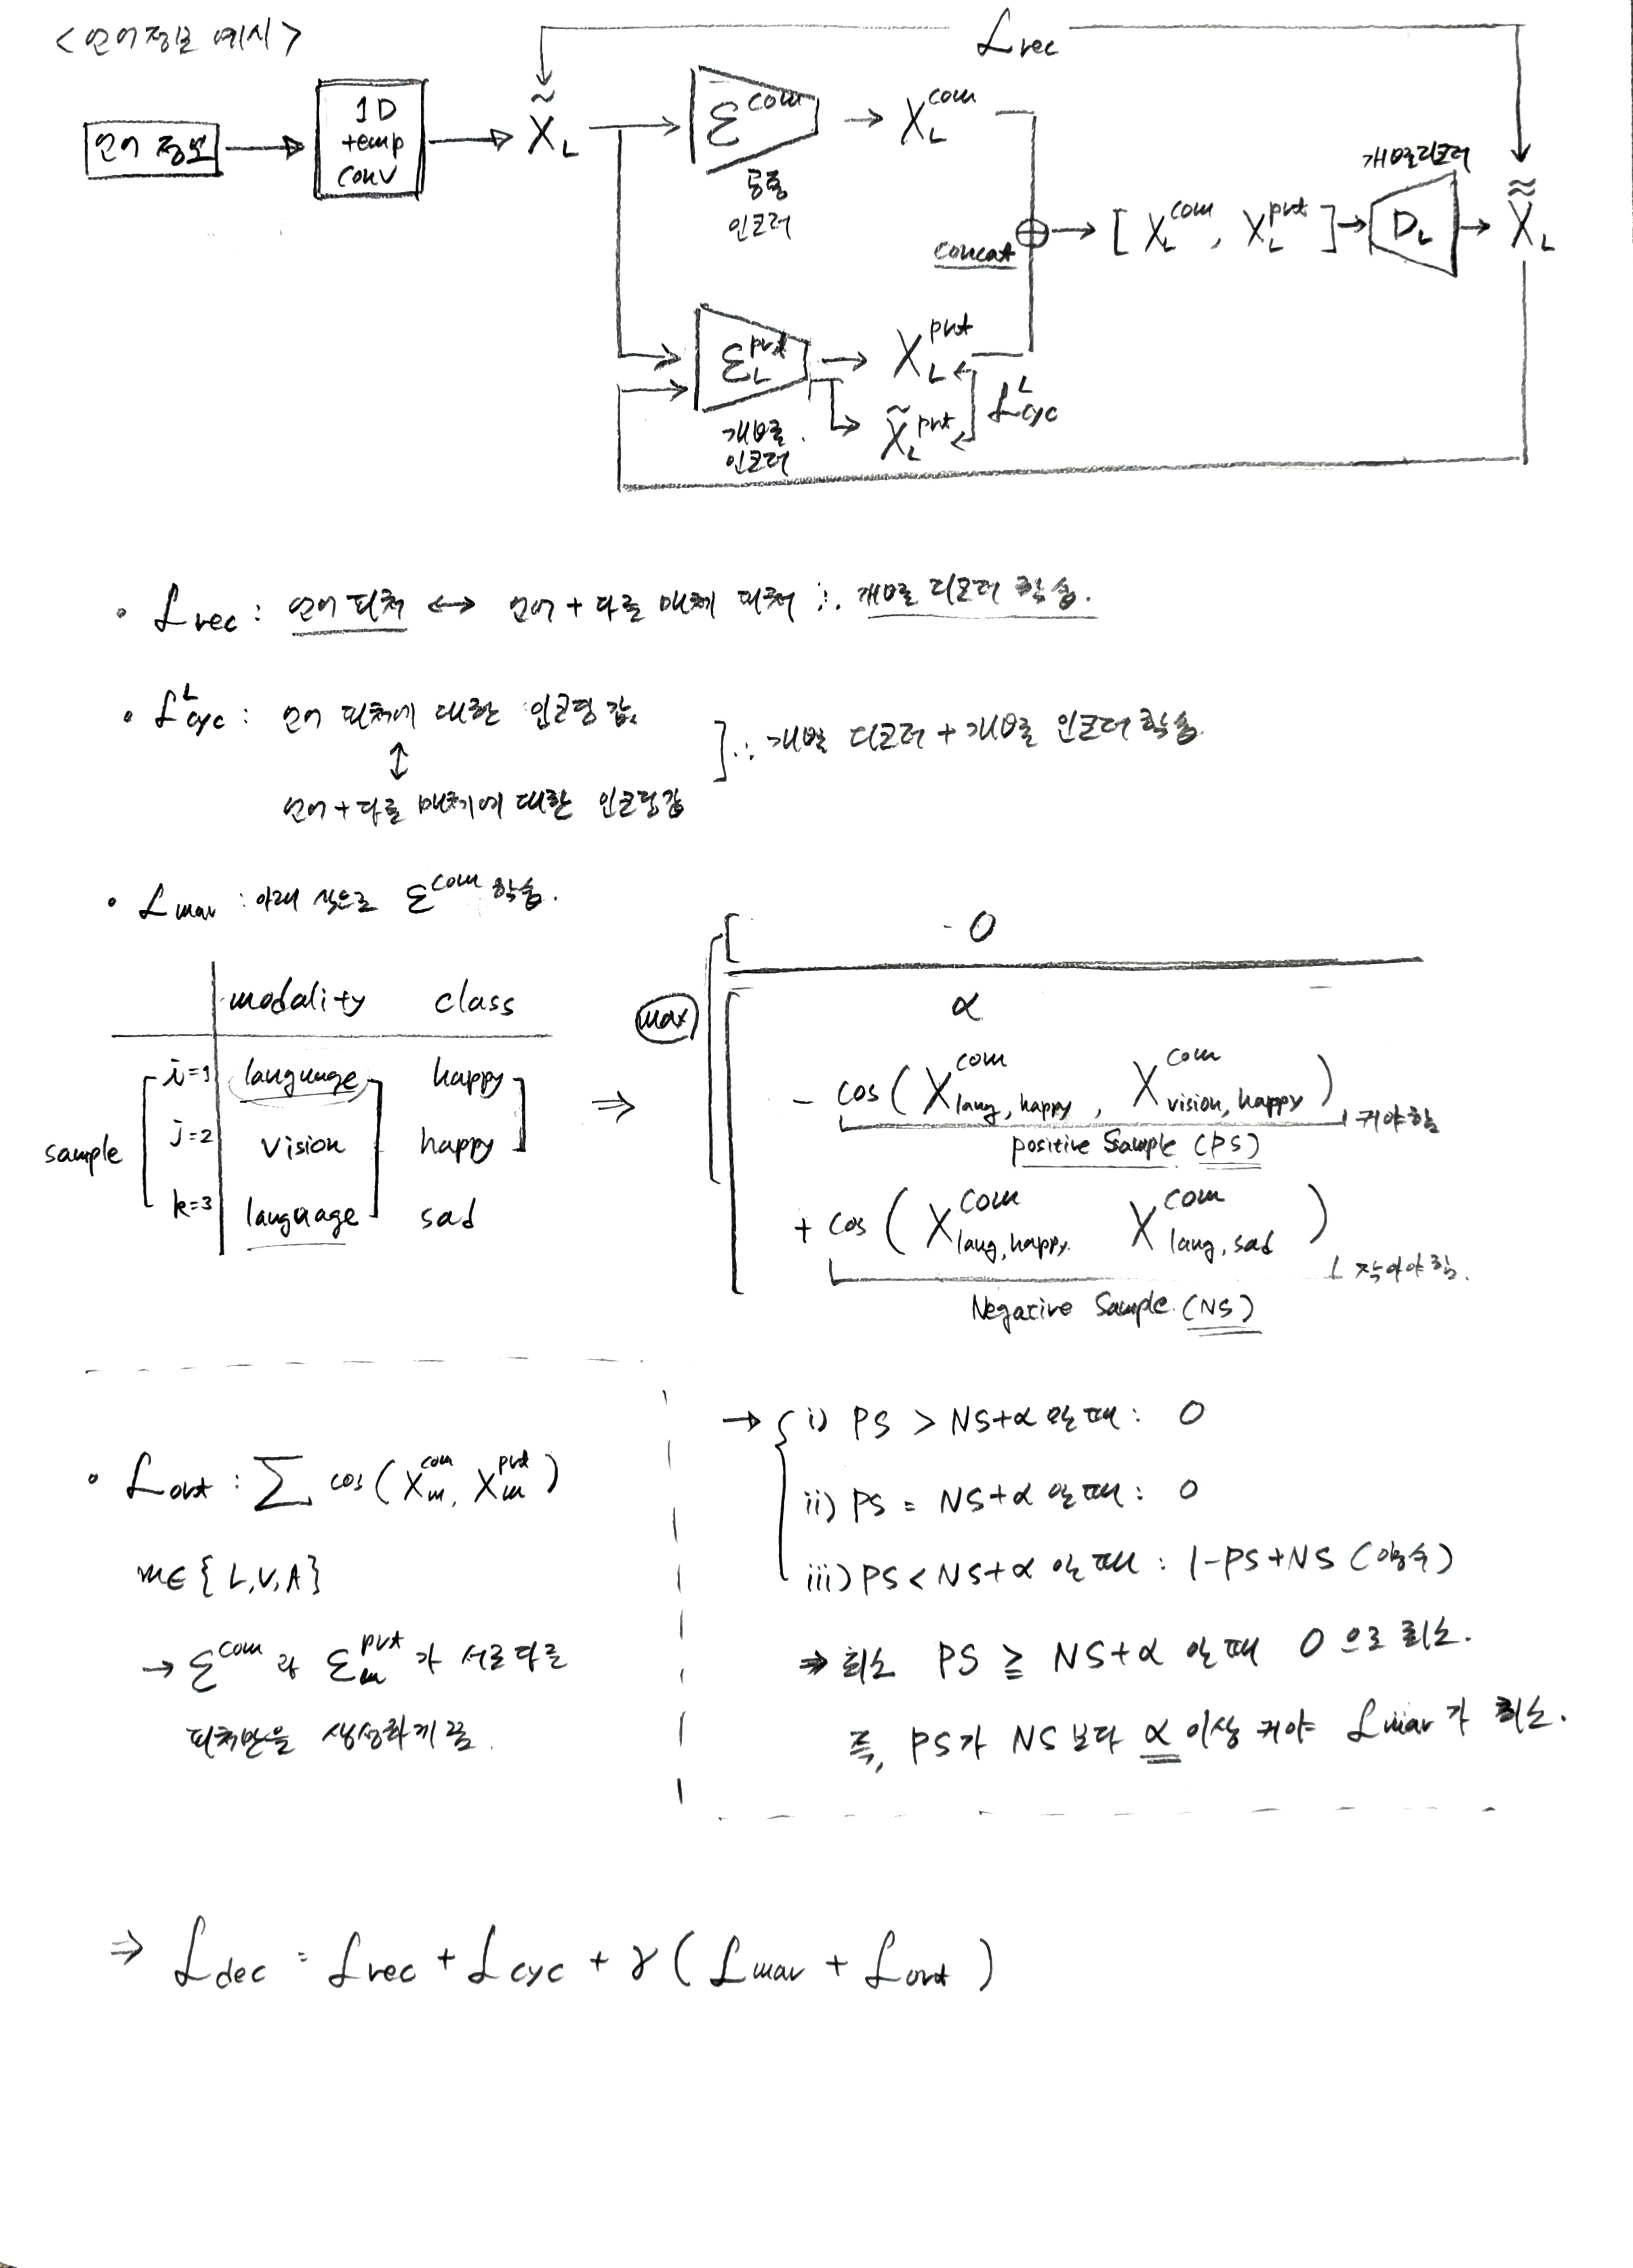 <언어정보 예시>
L rec
언어 정보
1D
temp
conv
X̃_L
Ɛ^com
X_L^com
공통
인코더
concat
[ X_L^com, X_L^prt ]
개별디코더
D_L
X̃̃_L
Ɛ_L^prt
X_L^prt
X̃_L^prt
L^L_cyc
개별
인코더
• L rec : 언어 피처 ↔ 언어 + 다른 매체 피처 ∴ 개별 디코더 학습.
• L^L_cyc : 언어 피처에 대한 인코딩 값
↕
언어 + 다른 매체에 대한 인코딩값
] ∴ 개별 디코더 + 개별 인코더 학습.
• L mar : 아래 식으로 Ɛ^com 학습.
modality class
sample
i=1 language happy
j=2 vision happy
k=3 language sad
⇒
max
0
α
- cos ( X^com_lang, happy , X^com_vision, happy )
커야함
positive Sample (PS)
+ cos ( X^com_lang, happy X^com_lang, sad )
작아야함.
Negative Sample (NS)
→ { i) PS > NS+α 일 때 : 0
ii) PS = NS+α 일 때 : 0
iii) PS < NS+α 일 때 : 1-PS+NS (양수)
⇒ 최소 PS ≧ NS+α 일 때 0 으로 최소.
즉, PS가 NS 보다 α 이상 커야 L mar 가 최소.
• L ort : ∑ cos ( X_m^com, X_m^prt )
m∈{ L, V, A }
→ Ɛ^com 와 Ɛ_m^prt 가 서로 다른
피처만을 생성하게 끔.
⇒ L dec = L rec + L cyc + γ ( L mar + L ort )